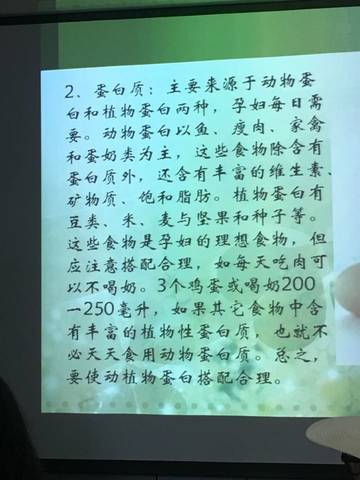 2、蛋白质：主要来源于动物蛋
白和植物蛋白两种，孕妇每日需
要。动物蛋白以鱼、瘦肉、家禽
和蛋奶类为主，这些食物除含有
蛋白质外，还含有丰富的维生素、
矿物质、饱和脂肪。植物蛋白有
豆类、米、麦与坚果和种子等。
这些食物是孕妇的理想食物，但
应注意搭配合理，如每天吃肉可
以不喝奶。3个鸡蛋或喝奶200
—250毫升，如果其它食物中含
有丰富的植物性蛋白质，也就不
必天天食用动物蛋白质。总之，
要使动植物蛋白搭配合理。